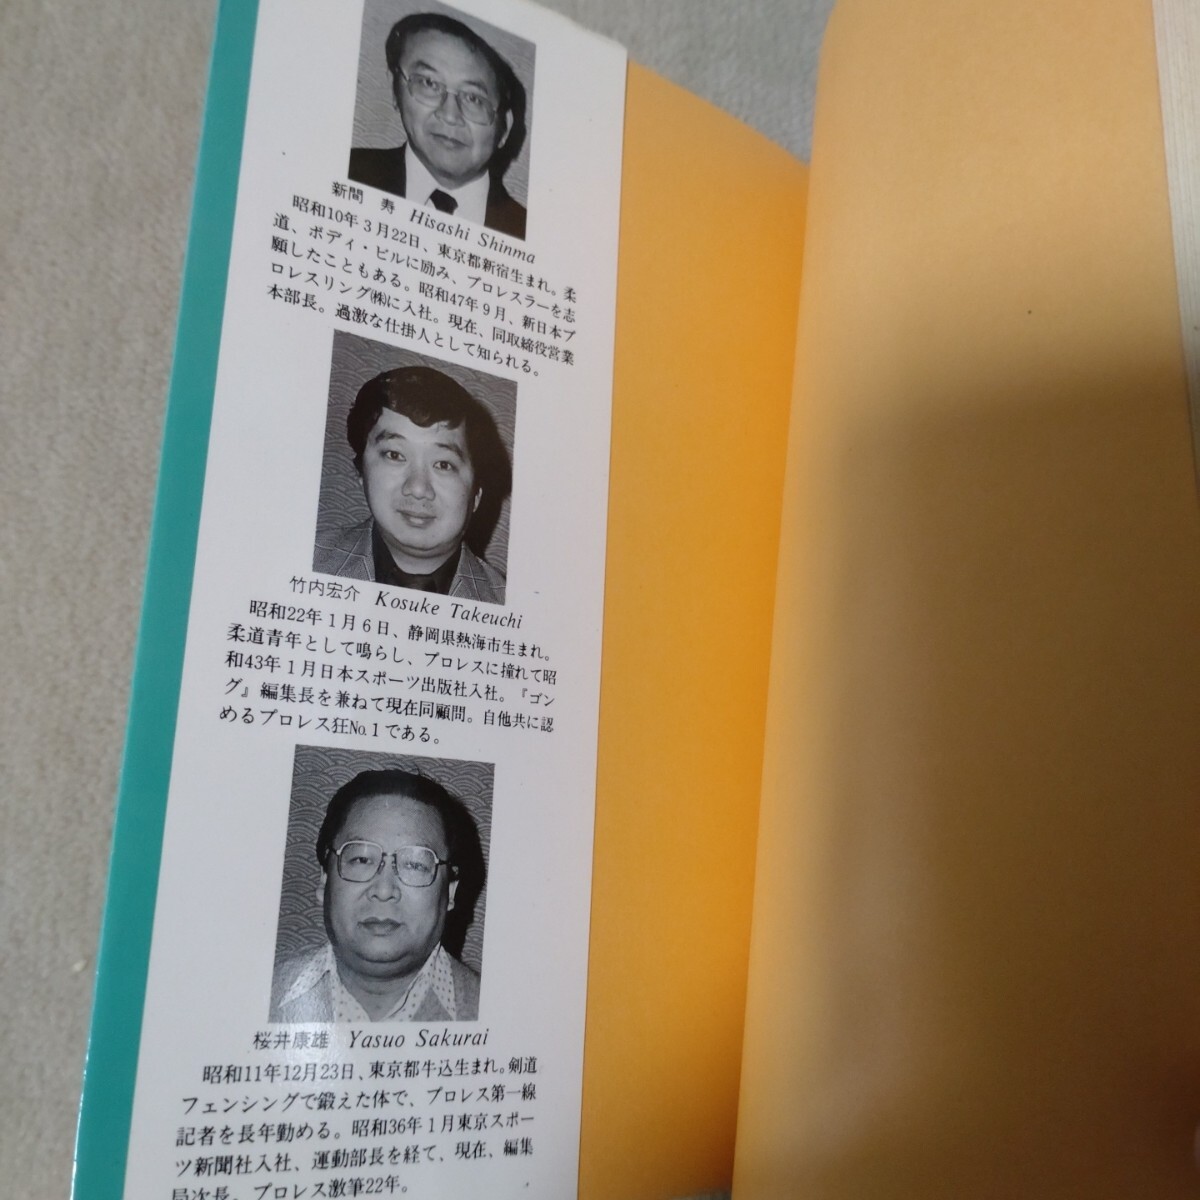 新間 寿 Hisashi Shinma
昭和10年3月22日、東京都新宿生まれ。柔
道、ボディ・ビルに励み、プロレスラーを志
願したこともある。昭和47年9月、新日本プ
ロレスリング㈱に入社。現在、同取締役営業
本部長。過激な仕掛人として知られる。
竹内宏介 Kosuke Takeuchi
昭和22年1月6日、静岡県熱海市生まれ。
柔道青年として鳴らし、プロレスに憧れて昭
和43年1月日本スポーツ出版社入社。『ゴン
グ』編集長を兼ねて現在同顧問。自他共に認
めるプロレス狂No.1である。
桜井康雄 Yasuo Sakurai
昭和11年12月23日、東京都牛込生まれ。剣道
フェンシングで鍛えた体で、プロレス第一線
記者を長年勤める。昭和36年1月東京スポー
ツ新聞社入社、運動部長を経て、現在、編集
局次長。プロレス激筆22年。